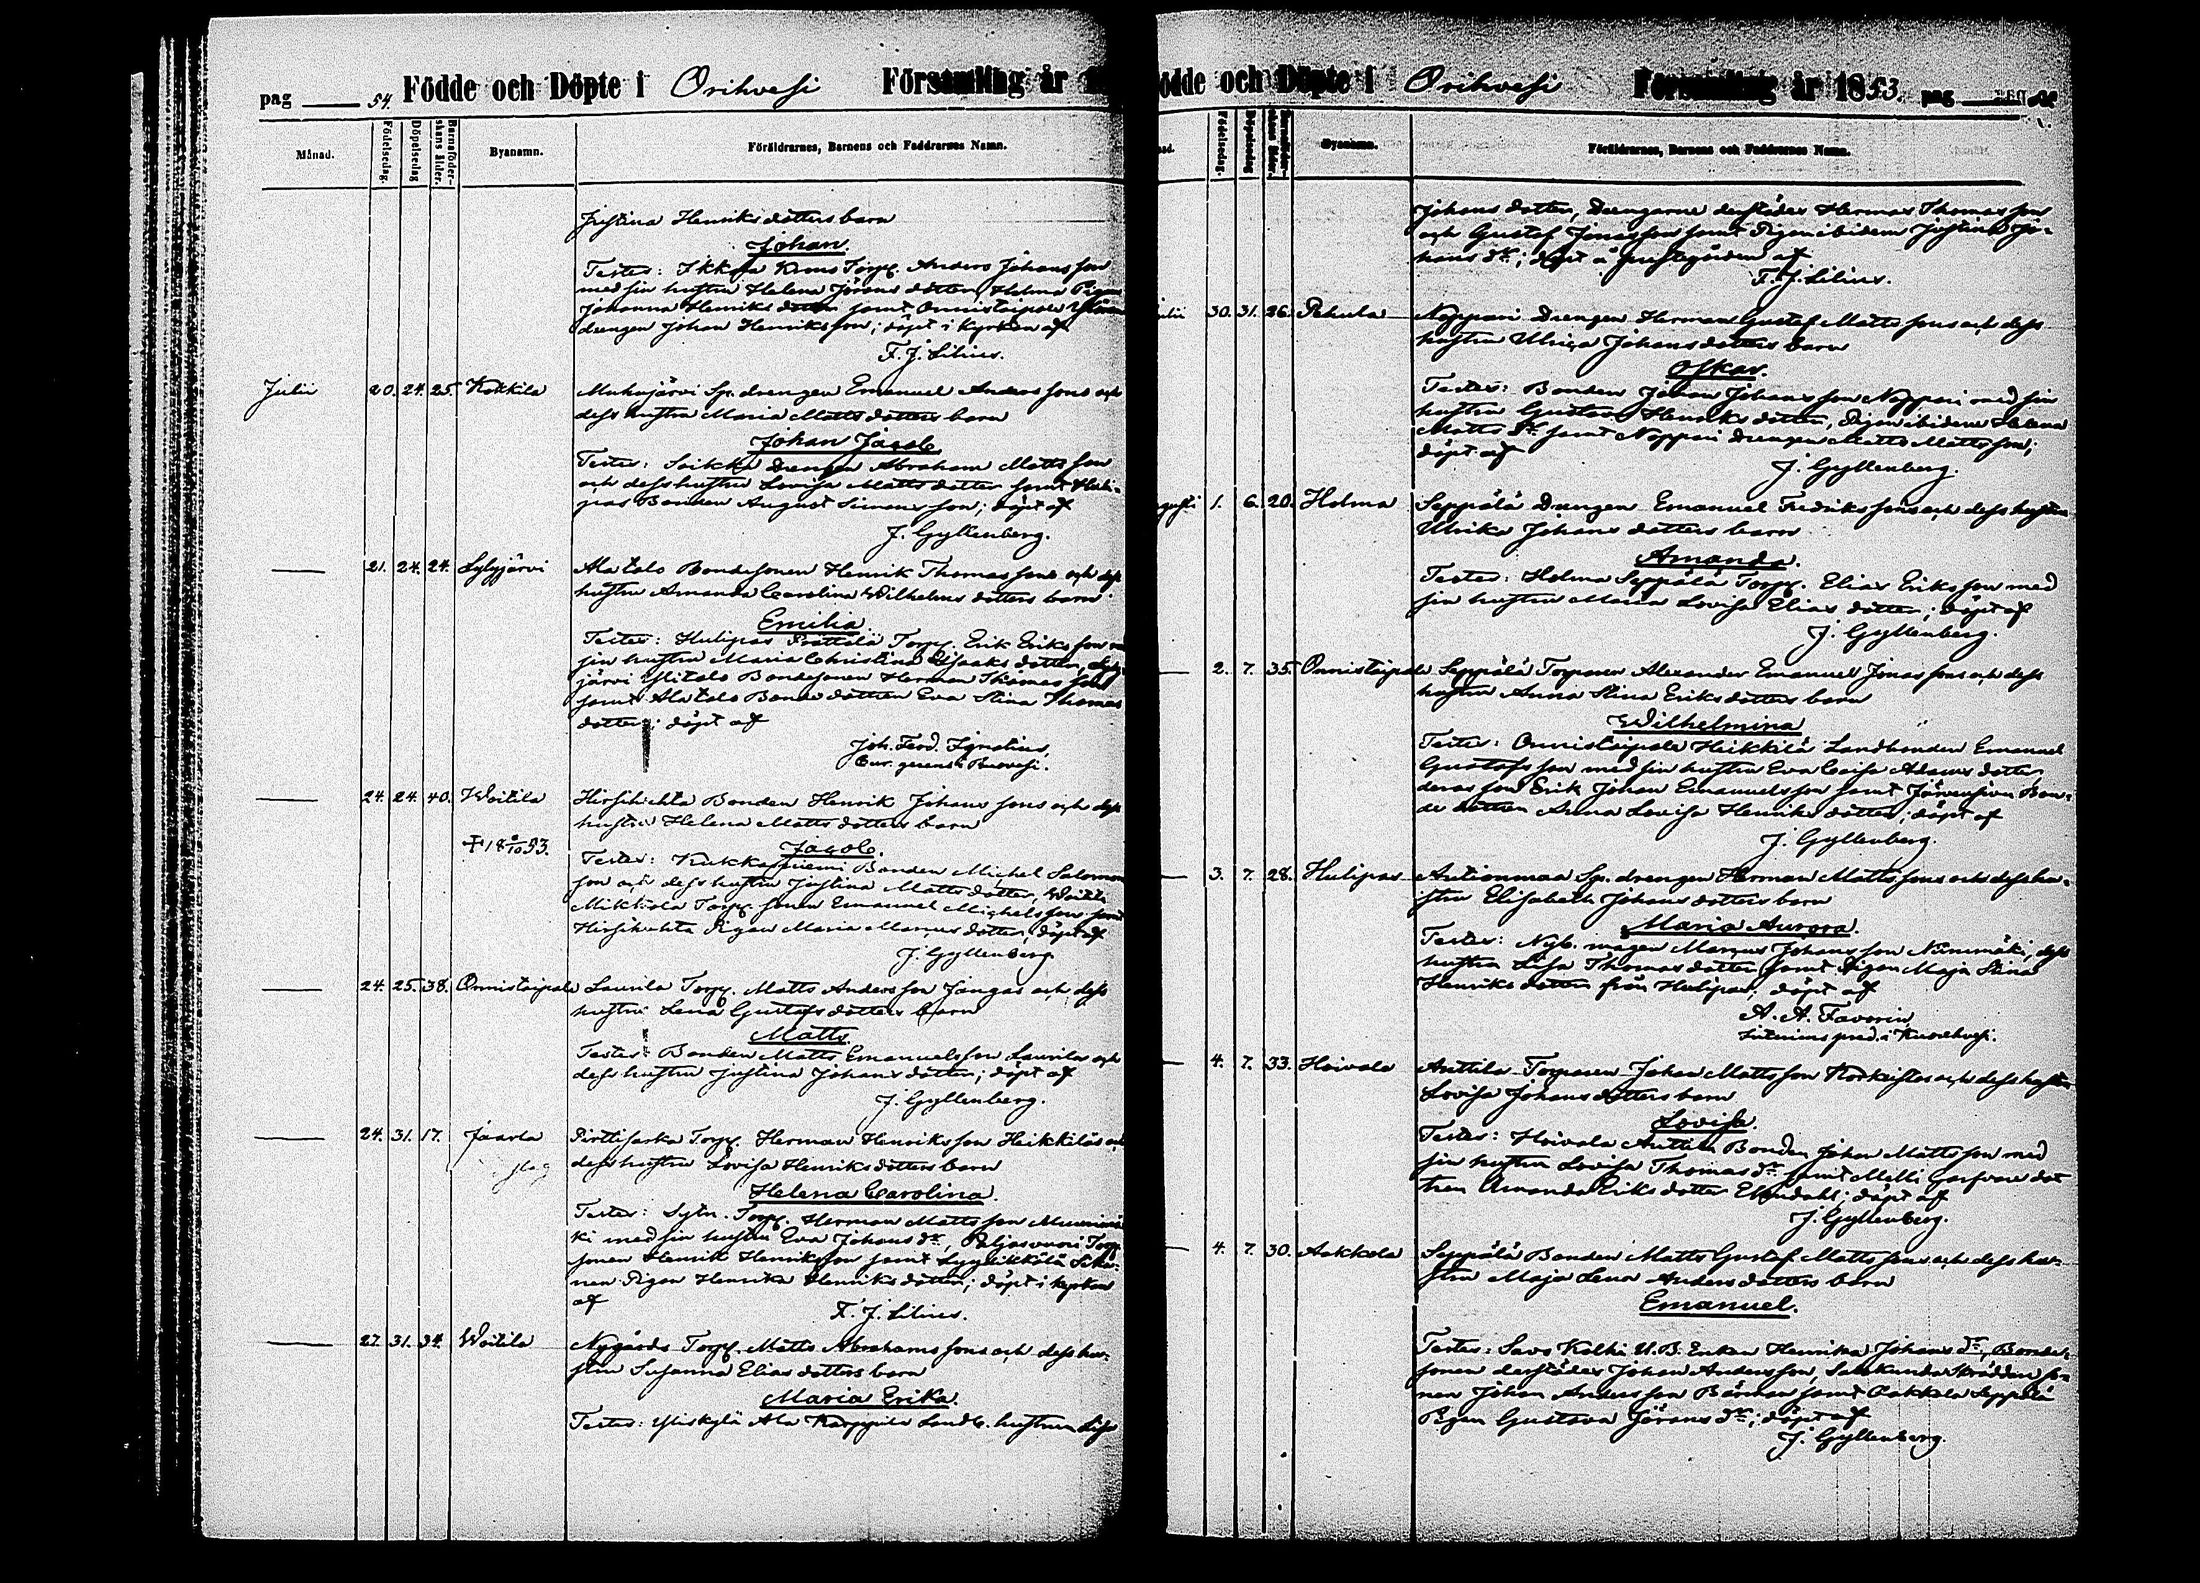 pag 54. Födde och Döpte i Orihvesi Församling år 1
Månad. Födelsedag. Döpelsedag Barnaföderskans ålder. Byanamn. Föräldrarnes, Barnens och Faddrarnes Namn.
Justina Henriksdotters barn
Johan.
Testes: Torp. Anders Johansson
med sin hustru Helena Jörans dotter, Holma Pigan
Johanna Henriks dotter samt Onnistaipale
drengen Johan Henriksson; döpt i Kyrkan af
F. J. Lilius.
Julii 20. 24. 25. Kokkila Muhujärvi Sp. drengen Emanuel Anderssons och
dess hustru Maria Mattsdotters barn
Johan Jacob.
Testes: Soikka Drengen Abraham Mattsson
och dess hustru Lovisa Mattsdotter samt Huli-
pas Bonden August Simonsson; döpt af
J. Gyllenberg.
— 21. 24. 24. Lylyjärvi Alatalo Bondesonen Henrik Thomassons och dess
hustru Amanda Carolina Wilhelmsdotters barn
Emilia
Testes: Hulipas Prättälä Torp. Erik Eriksson
sin hustru Maria Christina Isaaksdotter,
järvi Ylitalo Bondesonen Herman Thomasson
samt Alatalo Bonde dottren Eva Stina Thomas
dotter; döpt af
Joh. Ferd. Ignatius,
Cur. gerens i Ruovesi.
— 24. 24. 40. Woitila Hirsilahta Bonden Henrik Johanssons och dess
hustru Helena Mattsdotters barn
† 18 8/10 53. Jacob.
Testes: Kukkasniemi Bonden Michel Salomon
son och dess hustru Justina Mattsdotter, Woitila
Mikkola Torp. sonen Emanuel Michelsson samt
Hirsilahta Pigan Maria Marcusdotter; döpt af
J. Gyllenberg
— 24. 25. 38. Onnistaipale Laurila Torp. Matts Andersson Jangas och dess
hustru Lena Gustafsdotters barn
Matts.
Testes: Bonden Matts Emanuelsson Laurila och
dess hustru Justina Johansdotter; döpt af
J. Gyllenberg.
— 24. 31. 17. Jaarla Pirttisarka Torp. Herman Henriksson Heikkiläs och
dess hustru Lovisa Henriksdotters barn
Helena Carolina.
Testes: Sytn. Torp. Herman Mattsson
ki med sin hustru Eva Johans dr, Paljasvuori Torp.
sonen Henrik Henriksson samt
nen Pigan Henrika Henriksdotter; döpt i kyrkan
af
F. J. Lilius.
— 27. 31. 34. Woitila Nygårds Torp. Matts Abrahamssons och dess hu-
stru Susanna Eliasdotters barn
Maria Erika.
Testes: Yliskylä Ala Karppila Landb. hustrun Lisa
Födde och Döpte i Orihvesi Församling år 1853. pag
Födelsedag. Döpelsedag Byanamn. Föräldrarnes, Barnens och Faddrarnes Namn.
Johans dotter, Drengarne derstädes Herman Thomasson
och Gustaf Jonasson samt Pigan ibidem Justina Jo-
hans dr; döpt å prestgården af
F. J. Lilius.
Julii 30. 31. 26. Pehula Noppari Drengen Herman Gustaf Mattssons och dess
hustru Ulrica Johansdotters barn
Oskar.
Testes: Bonden Johan Johansson Noppari med sin
hustru Gustava Henriksdotter, Pigan ibidem Helena
Matts dr samt Noppari drengen Matts Mattsson;
döpt af
J. Gyllenberg.
gusti 1. 6. 20. Holma Seppälä Drengen Emanuel Fredrikssons och dess hustru
Ulrika Johans dotters barn
Amanda.
Testes: Holma Seppälä Torp. Elias Eriksson med
sin hustru Maria Lovisa Elias dotter; döpt af
J. Gyllenberg.
— 2. 7. 35. Onnistaipale Seppälä Torparen Alexander Emanuel Jonassons och dess
hustru Anna Stina Eriksdotters barn
Wilhelmina
Testes: Onnistaipale Heikkilä Landbonden Emanuel
Gustafsson med sin hustru Eva Caisa Adamsdotter
deras son Erik Johan Emanuelsson samt Järvensivu Bon-
de dottren Anna Lovisa Henriksdotter; döpt af
J. Gyllenberg.
— 3. 7. 28. Hulipas Antinmaa Sp. drengen Herman Mattssons och dess hu-
stru Elisabeth Johansdotters barn
Maria Aurora.
Testes: Nyb. magen Marcus Johansson Nimmäki, dess
hustru Lisa Thomasdotter samt Pigan Maja Stina
Henriks dotter från Hulipas; döpt af
A. A. Favorin
Interims pred. i Kuorehvesi.
— 4. 7. 33. Hoivala Anttila Torparen Johan Mattsson Korkeistas och dess hustru
Lovisa Johansdotters barn
Lovisa.
Testes: Hoivala Anttila Bonden Johan Mattsson med
sin hustru Lovisa Thomas dr samt Garfvare dot
tren Amanda Eriksdotter Ekendahl; döpt af
J. Gyllenberg.
— 4. 7. 30. Aakkola Seppälä Bonden Matts Gustaf Mattssons och dess hu-
stru Maja Lena Andersdotters barn
Emanuel.
Testes: Savo Kolhi U.B. Enkan Henrika Johans dr, Bonde-
sonen derstädes Johan Andersson, Skräddareso-
nen Johan Andersson Bärman samt Aakkola Seppälä
Pigan Gustava Jörans dr; döpt af
J. Gyllenberg.